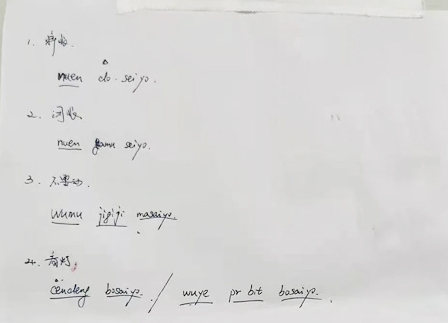 1. 睁眼
nuen do seiyo.
2. 闭眼
nuen gamu seiyo.
3. 不要动.
wumu jigiji masaiyo.
4. 看灯.
cendeng bosaiyo. / wuye pr bit bosaiyo.